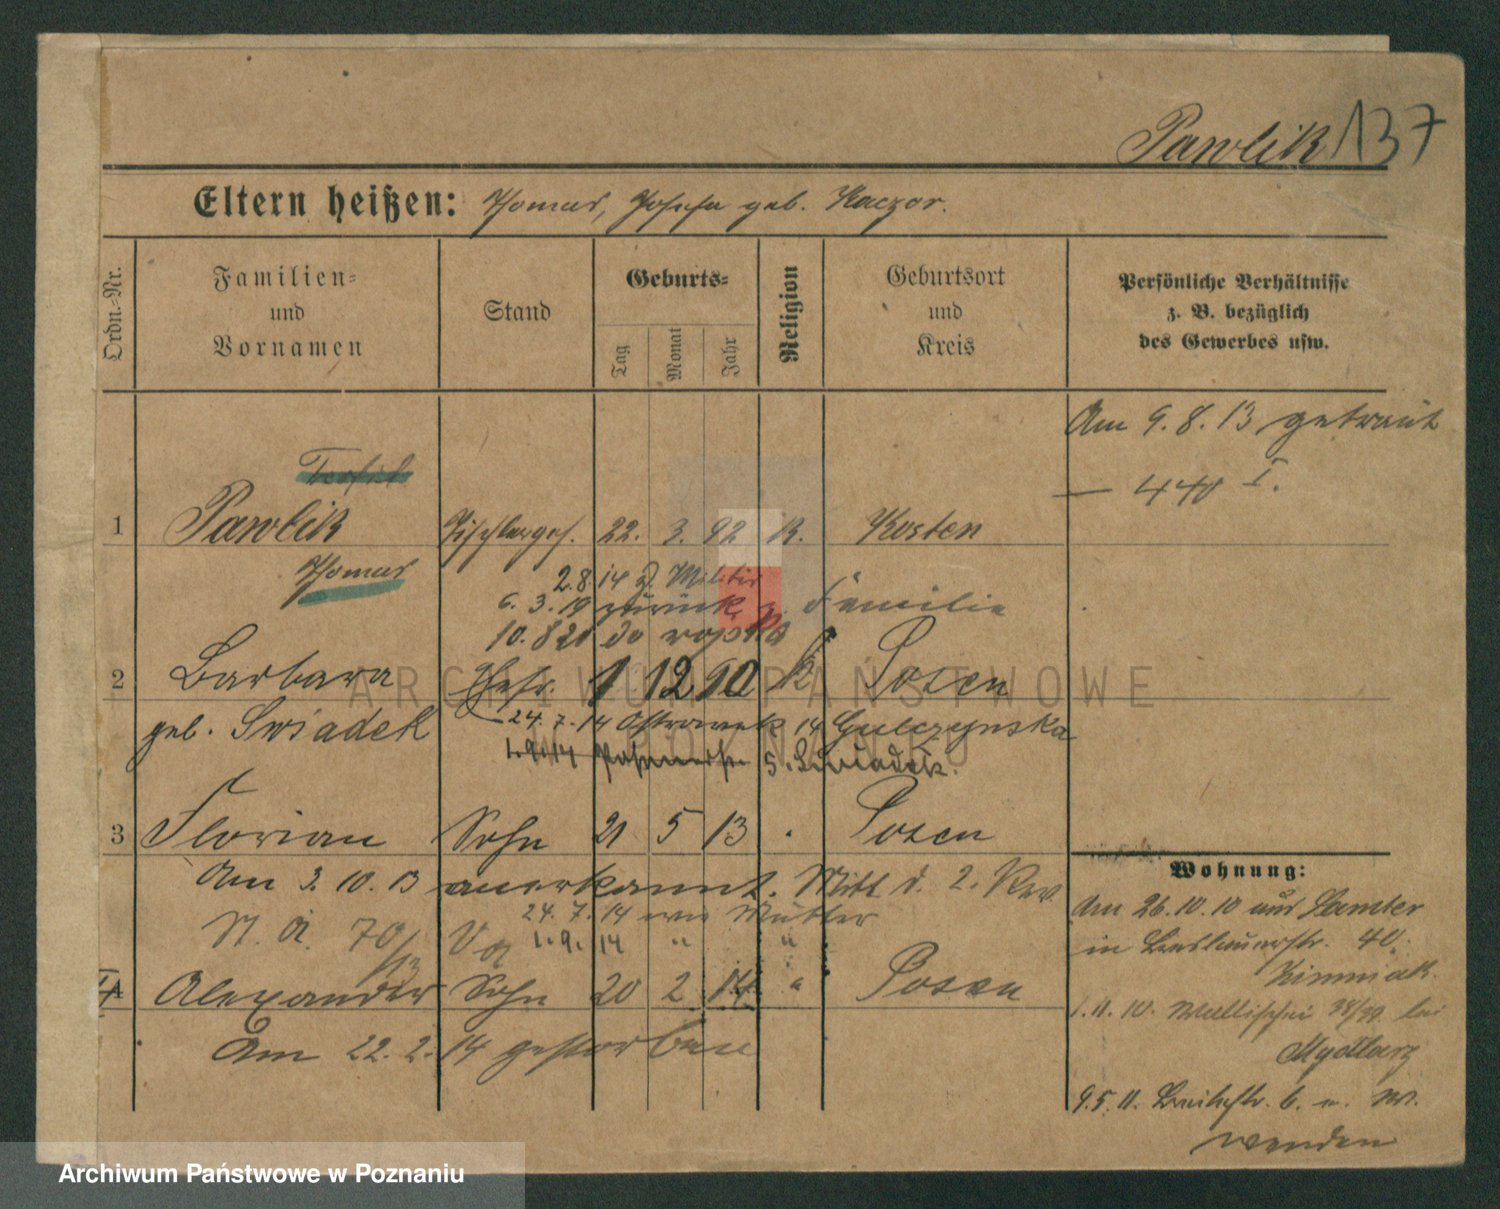 Pawlik 137
Eltern heißen: Thomas, Josefa geb. Kaczor.
Ordn.=Nr.
Familien=
und
Vornamen
Stand
Geburts=
Tag
Monat
Jahr
Religion
Geburtsort
und
Kreis
Persönliche Verhältnisse
z. B. bezüglich
des Gewerbes usw.
Am 9.8.13 getraut
— 440 I.
Teofil
1 Pawlik Tischlerges. 22. 3. 92 K. Kosten
Thomas
2.8.14 z. Militär
6.3.19 zurück z. Familie
10.8 20 do
2 Barbara Ehefr. 1 12 90 k Posen
geb. Swiadek
24.7.14 14 Gulczynska
1.9.14 5. Swiadek.
3 Florian Sohn 21 5 13 . Posen
Am 3.10.13 anerkannt.
24.7.14 wie Mutter
1.9.14 " "
4 Alexander Sohn 20 2 14 " Posen
Am 22.2.14 gestorben
Wohnung:
Am 26.10.10 aus Samter
in Breslauerstr. 40.
1.11.10. Wallischei 38/39 bei
Mydlarz
9.5.11. Breitestr. 6.
wenden
ARCHIWUM PAŃSTWOWE
W POZNANIU
Archiwum Państwowe w Poznaniu